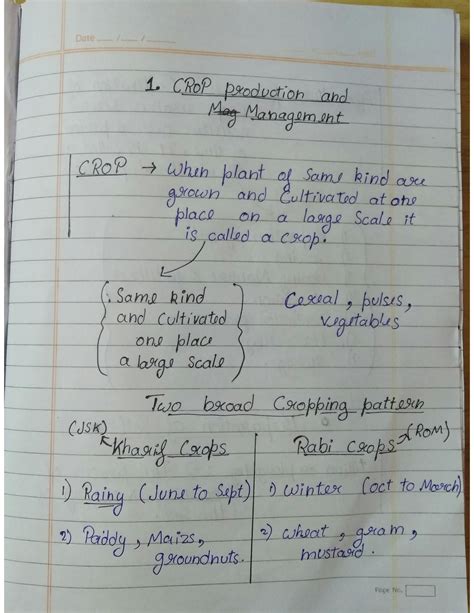 Date ___/___/___
1. CROP production and
Mag Management
CROP → When plant of same kind are
grown and Cultivated at one
place on a large Scale it
is called a crop.
. Same kind
and cultivated
one place
a large scale
Cereal, pulses,
vegetables
Two broad Cropping pattern
(JSK) Kharif Crops
Rabi crops (ROM)
1) Rainy (June to Sept)
1) winter (oct to March)
2) Paddy, Maizs,
groundnuts.
2) wheat, gram,
mustard.
Page No.